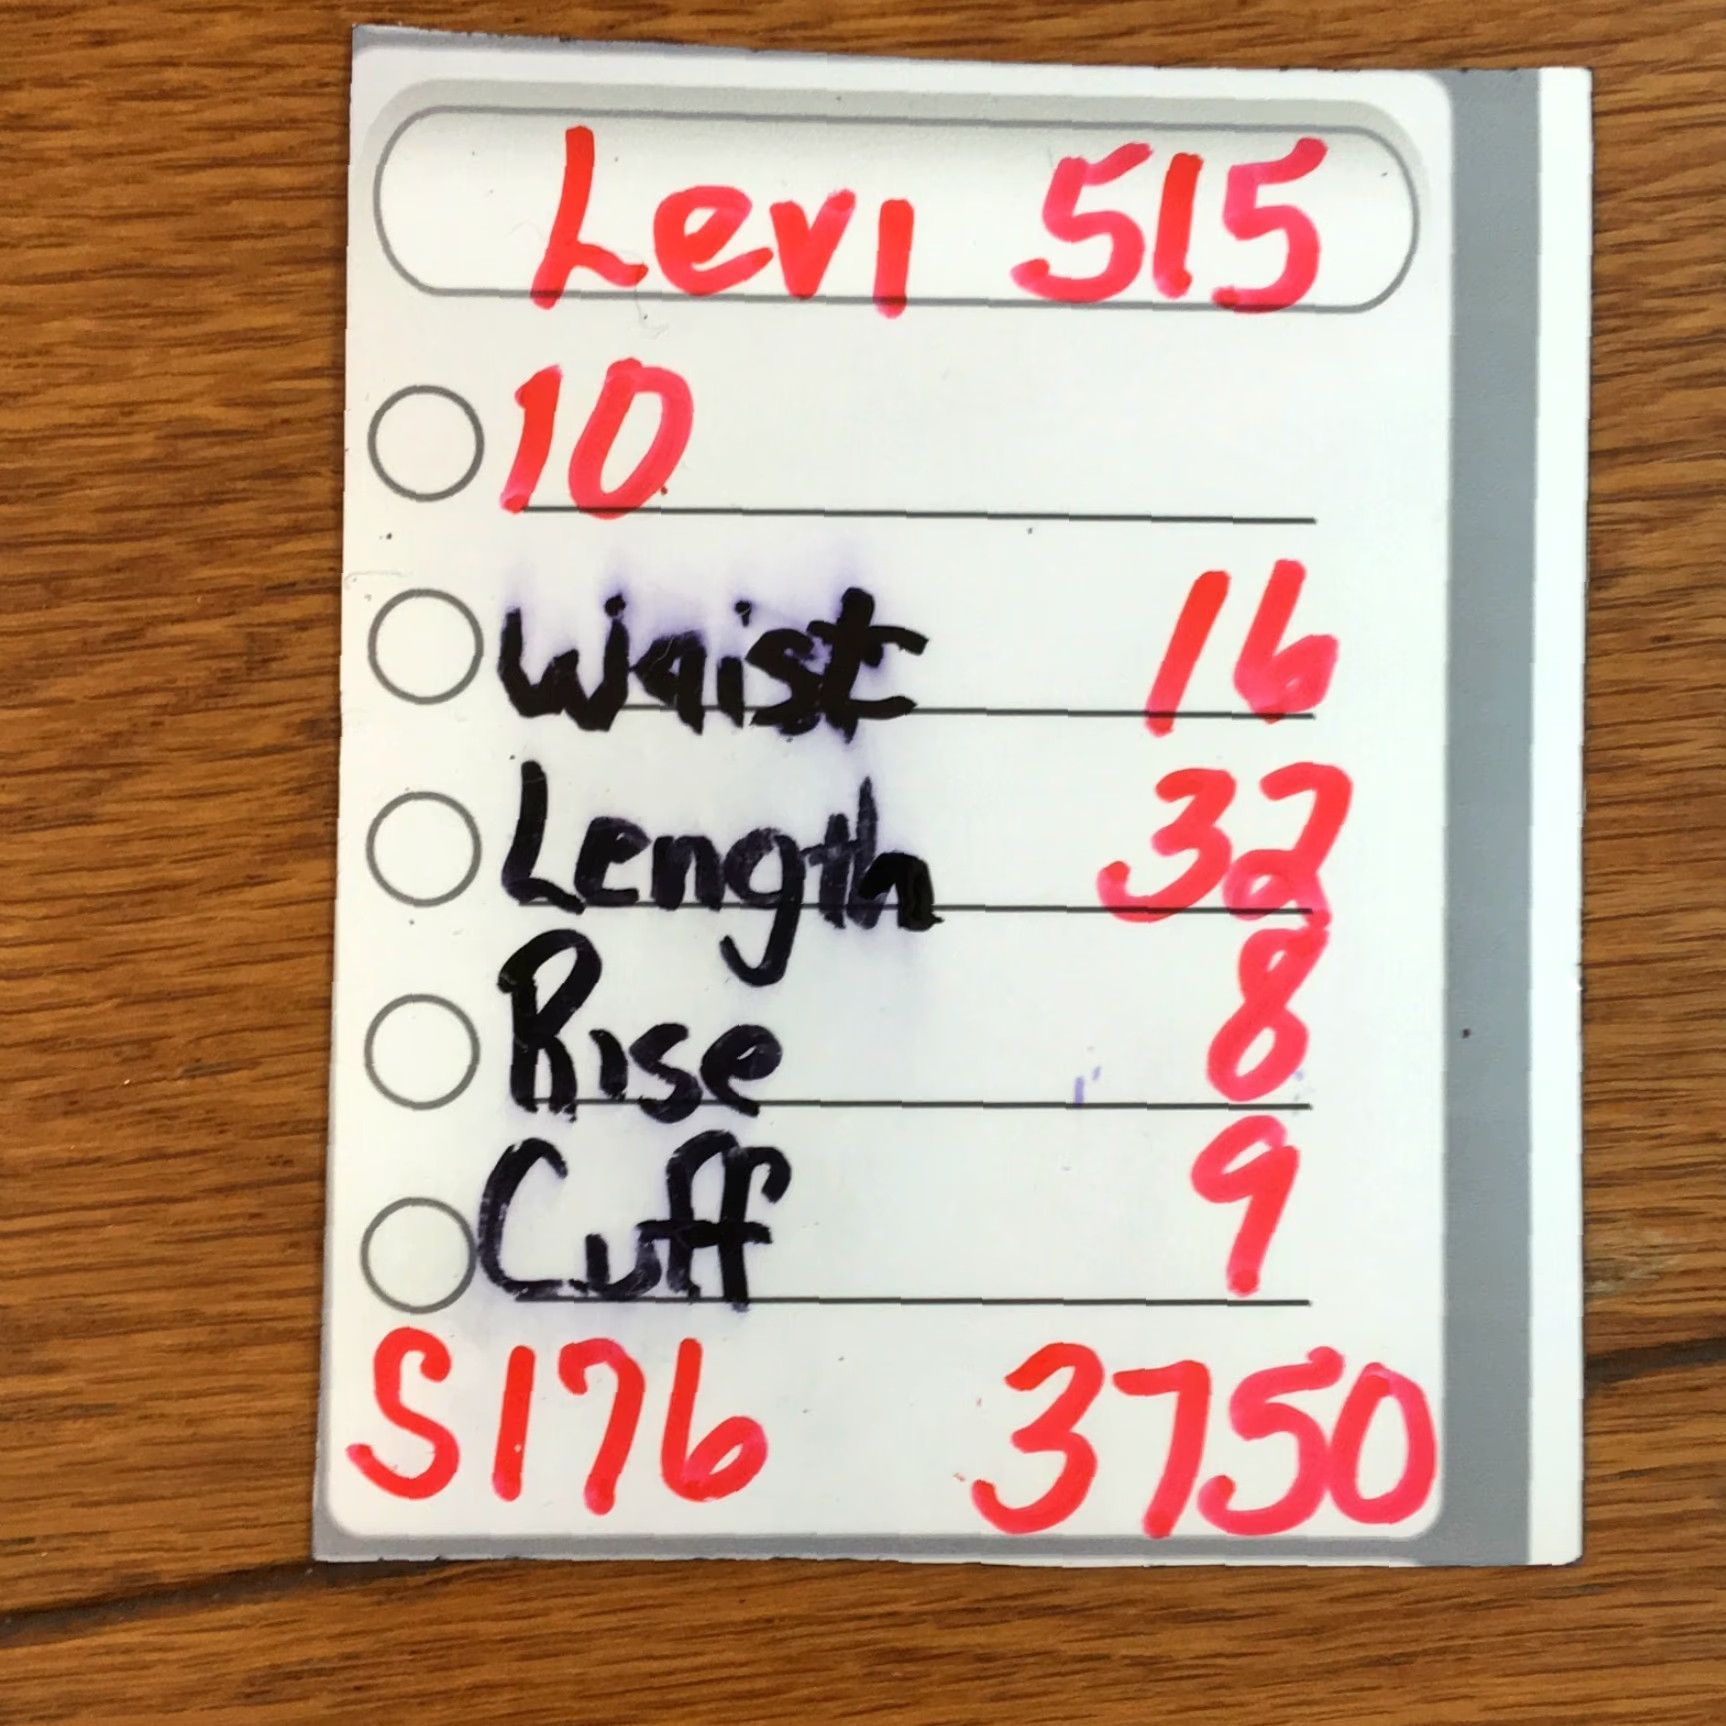 Levi 515
10
Waist 16
Length 32
Rise 8
Cuff 9
S176 3750